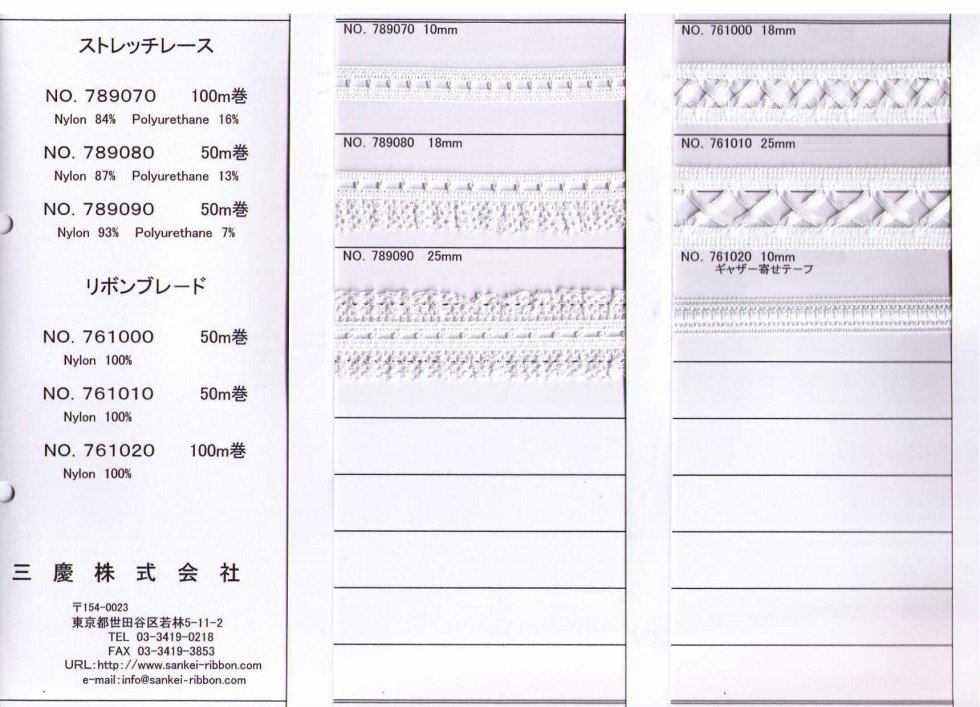 ストレッチレース
NO. 789070 100m巻
Nylon 84% Polyurethane 16%
NO. 789080 50m巻
Nylon 87% Polyurethane 13%
NO. 789090 50m巻
Nylon 93% Polyurethane 7%
リボンブレード
NO. 761000 50m巻
Nylon 100%
NO. 761010 50m巻
Nylon 100%
NO. 761020 100m巻
Nylon 100%
三慶株式会社
〒154-0023
東京都世田谷区若林5-11-2
TEL 03-3419-0218
FAX 03-3419-3853
URL:http://www.sankei-ribbon.com
e-mail:info@sankei-ribbon.com
NO. 789070 10mm
NO. 789080 18mm
NO. 789090 25mm
NO. 761000 18mm
NO. 761010 25mm
NO. 761020 10mm
ギャザー寄せテープ